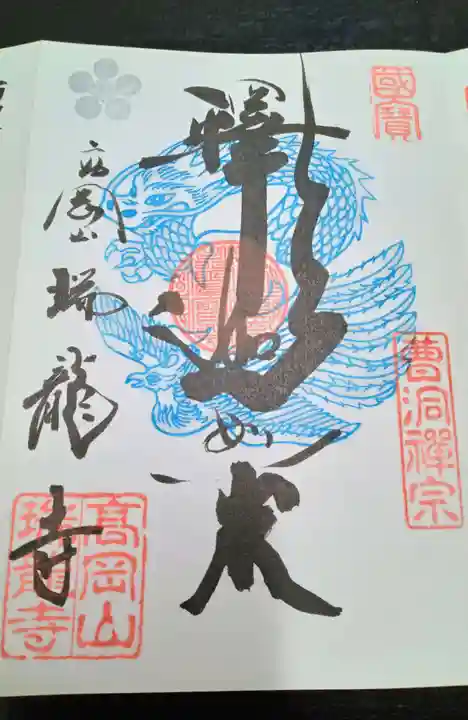 國寶
曹洞禪宗
釋迦如来
高岡山
瑞龍寺
高岡山
瑞龍寺